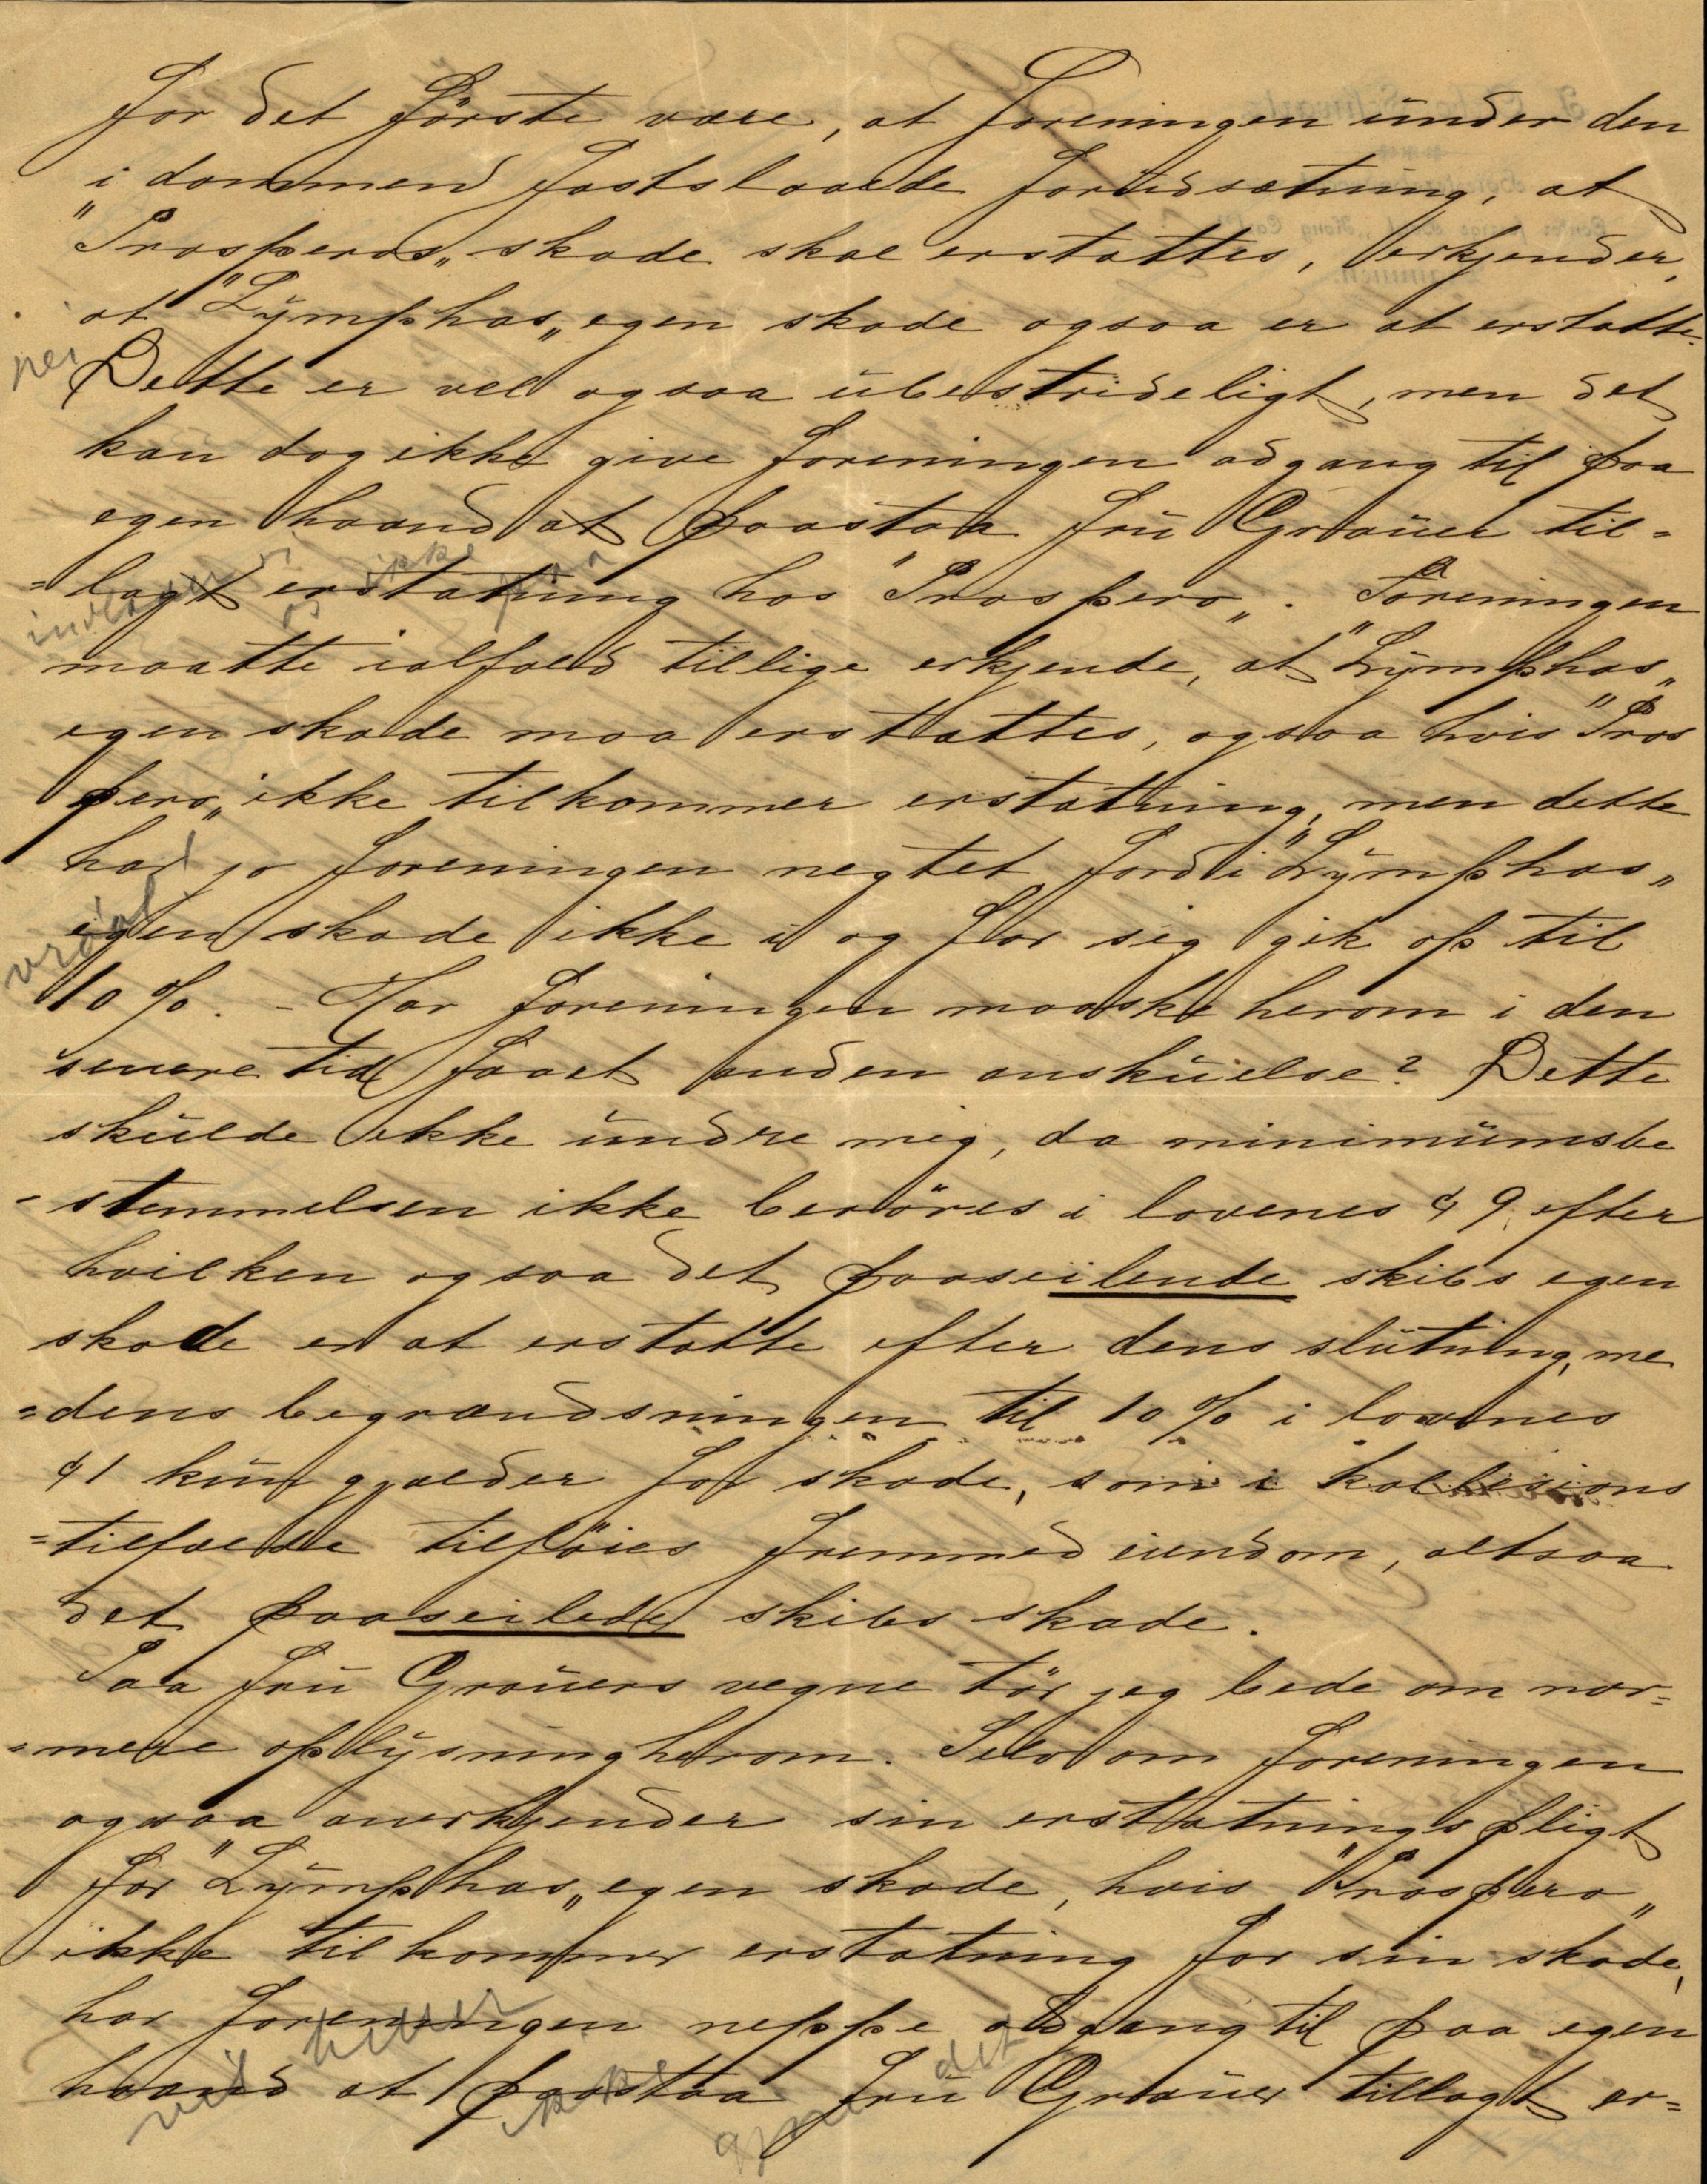 for det förste være, at foreningen under den
i dommen fastslaaede forudsætning, at
"Prosperos„ skade skal erstattes, erkjender,
at "Lymphas„ egen skade ogsaa er at erstatte.
nei
Dette er vel ogsaa ubestrideligt, men det
kan dog ikke give foreningen adgang til paa
egen haand at paastaa fru Graüer til=
=lagt erstatning hos "Prospero„. Foreningen
ikke
maatte ialfald tillige erkjende, at "Lymphas„
egen skade maa erstattes, ogsaa hvis "Pros
pero„ ikke tilkommer erstatning, men dette
har jo foreningen negtet fordi "Lymphas„
egen skade ikke i og for sig gik op til
10 %. – Har foreningen maaske herom i den
senere tid faaet anden anskuelse? Dette
skulde ikke undre mig, da minimumsbe
-stemmelsen ikke beröres i lovenes § 9, efter
hvilken ogsaa det paaseilende skibs egen
skade er at erstatte efter dens slutning, me
=dens begrændsningen til 10 % i lovenes
§ 1 kun gjælder for skade, som i kollisions
=tilfælde tilföies fremmed eiendom, altsaa
det paaseilede skibs skade.
Paa fru Graüers vegne tör jeg bede om nær=
=mere oplysning herom. Selv om foreningen
ogsaa anerkjender sin erstatningspligt
for "Lymphas„ egen skade, hvis "Prospero„
ikke tilkommer erstatning for sin skade,
har foreningen neppe adgang til paa egen
haand at paastaa fru Graüer tillagt er=
vil heller ikke gjøre det